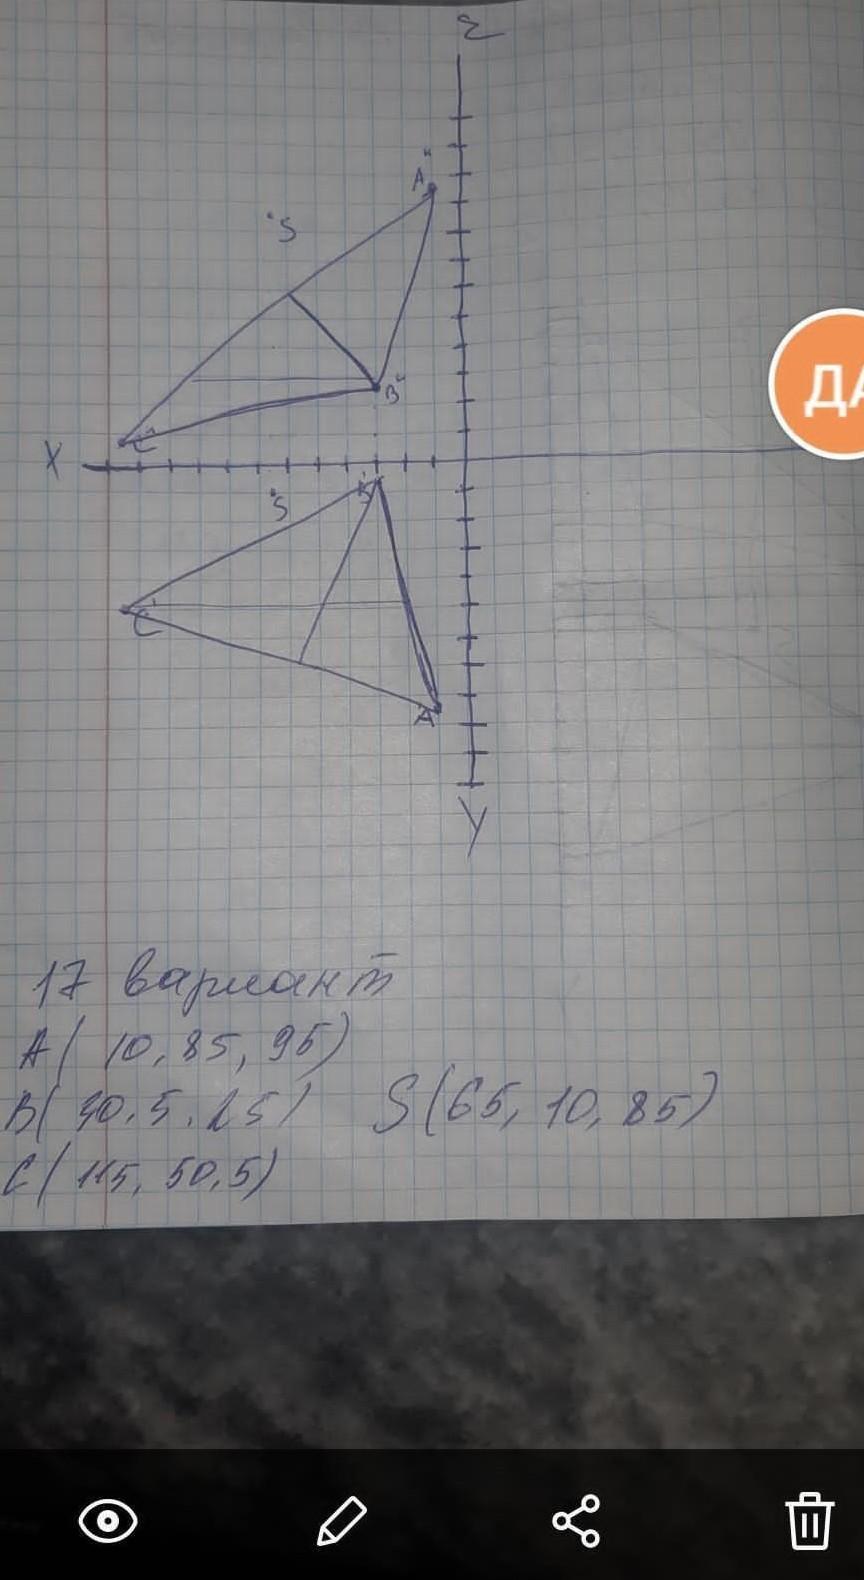 Z
A"
S
B"
C"
X
S
B'
C'
A'
Y
ДА
17 вариант
A( 10, 85, 95)
B( 30, 5, 25) S(65, 10, 85)
C( 115, 50, 5)